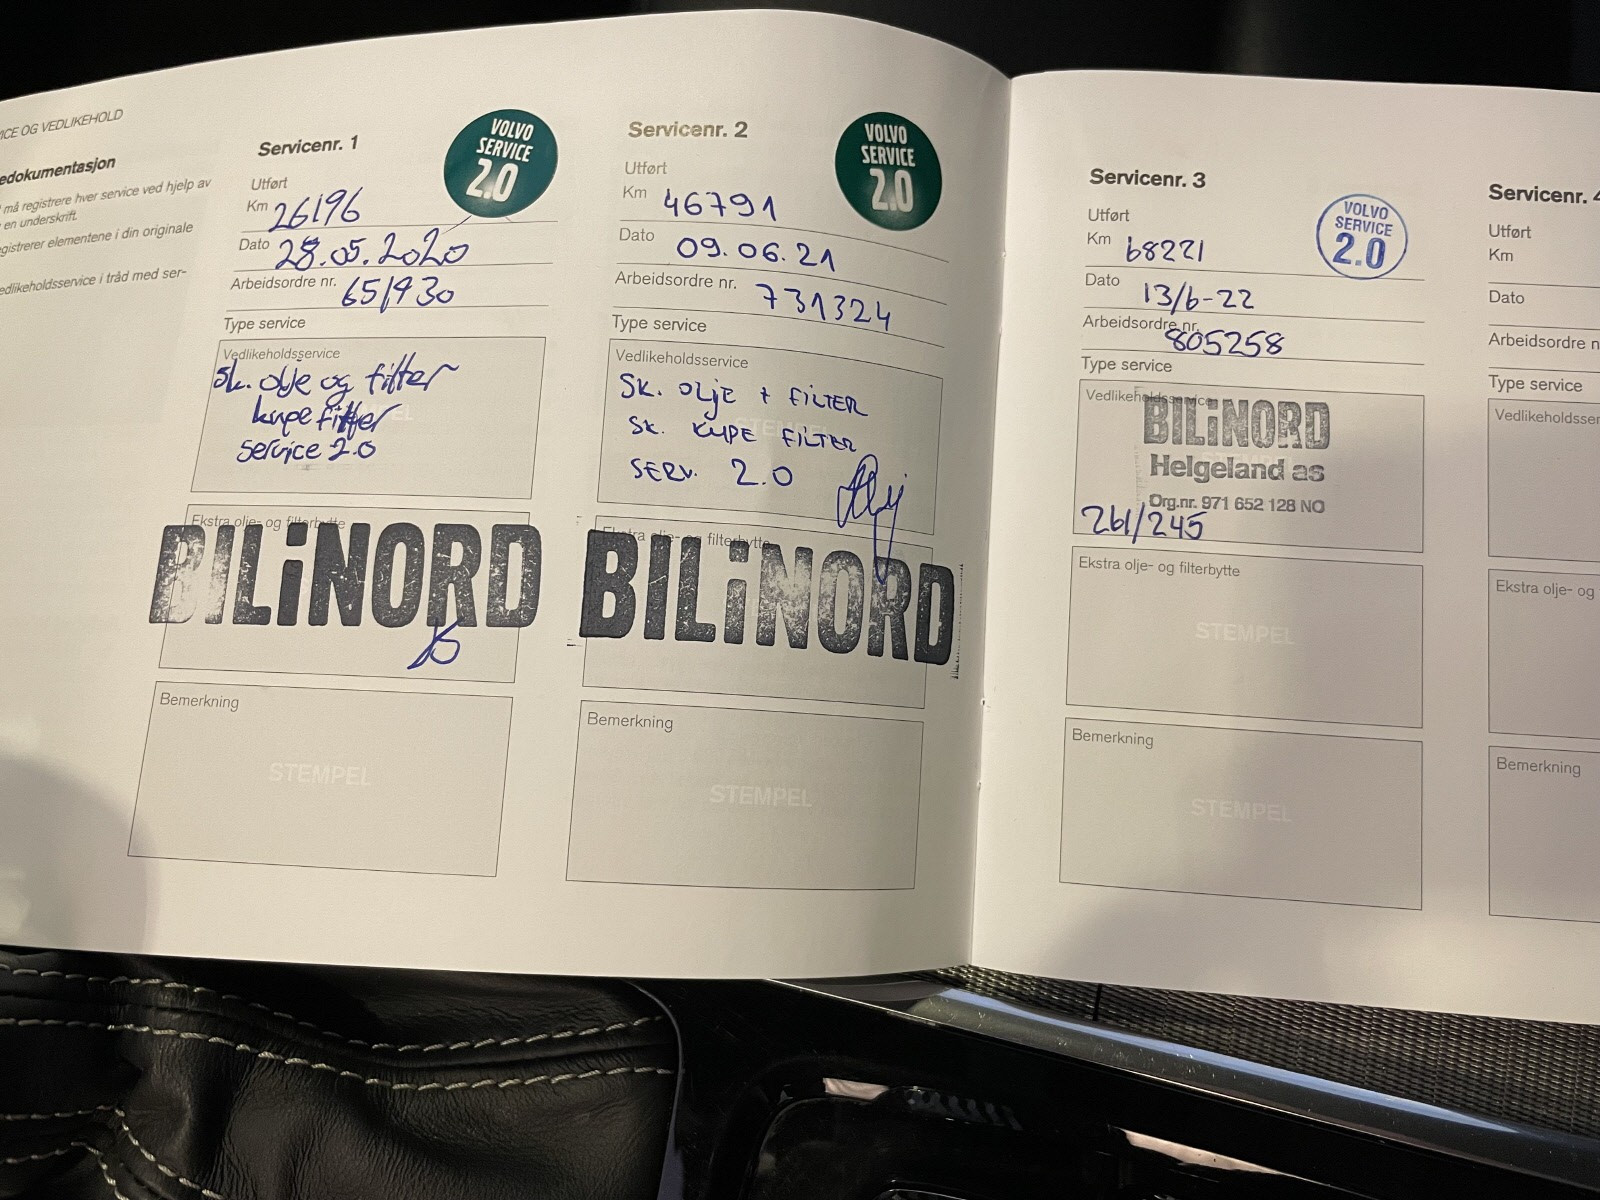 ICE OG VEDLIKEHOLD
edokumentasjon
må registrere hver service ved hjelp av
en underskrift.
gistrerer elementene i din originale
edlikeholdsservice i tråd med ser-
Servicenr. 1
VOLVO
SERVICE
2.0
Utført
Km 26196
Dato 28.05.2020
Arbeidsordre nr. 651930
Type service
Vedlikeholdsservice
Sk. olje og filter
kupe filter
service 2.0
Ekstra olje- og filterbytte
BILiNORD
Bemerkning
STEMPEL
Servicenr. 2
VOLVO
SERVICE
2.0
Utført
Km 46791
Dato 09.06.21
Arbeidsordre nr. 731324
Type service
Vedlikeholdsservice
SK. OLJE + FILTER
SK. KUPE FILTER
SERV. 2.0
Ekstra olje- og filterbytte
BILiNORD
Bemerkning
STEMPEL
Servicenr. 3
VOLVO
SERVICE
2.0
Utført
Km 68221
Dato 13/6-22
Arbeidsordre nr. 805258
Type service
Vedlikeholdsservice
BILiNORD
Helgeland as
Org.nr. 971 652 128 NO
261/245
Ekstra olje- og filterbytte
STEMPEL
Bemerkning
STEMPEL
Servicenr. 4
Utført
Km
Dato
Arbeidsordre n
Type service
Vedlikeholdsser
Ekstra olje- og
Bemerkning